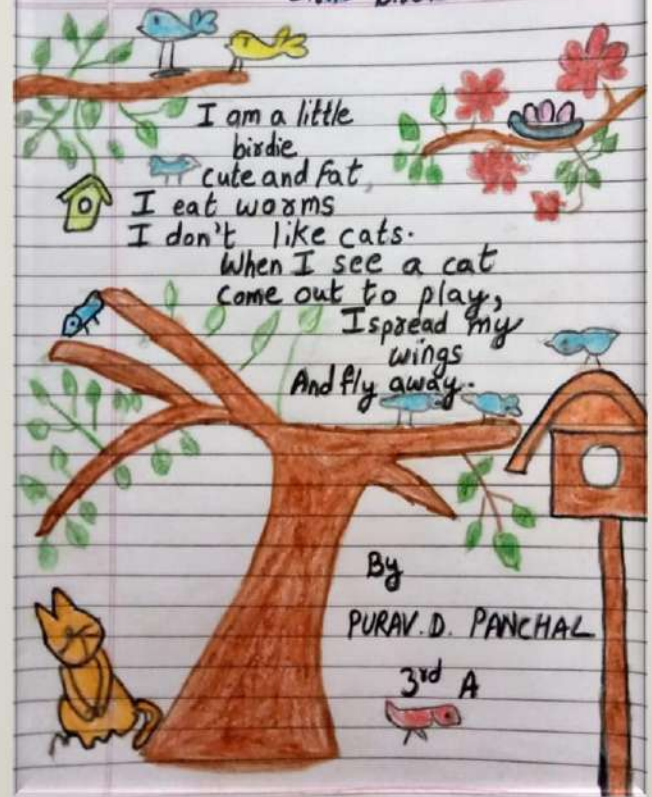 I am a little
birdie
cute and fat,
I eat worms
I don't like cats.
When I see a cat
come out to play,
I spread my
wings
And fly away.
By
PURAV.D. PANCHAL
3rd A